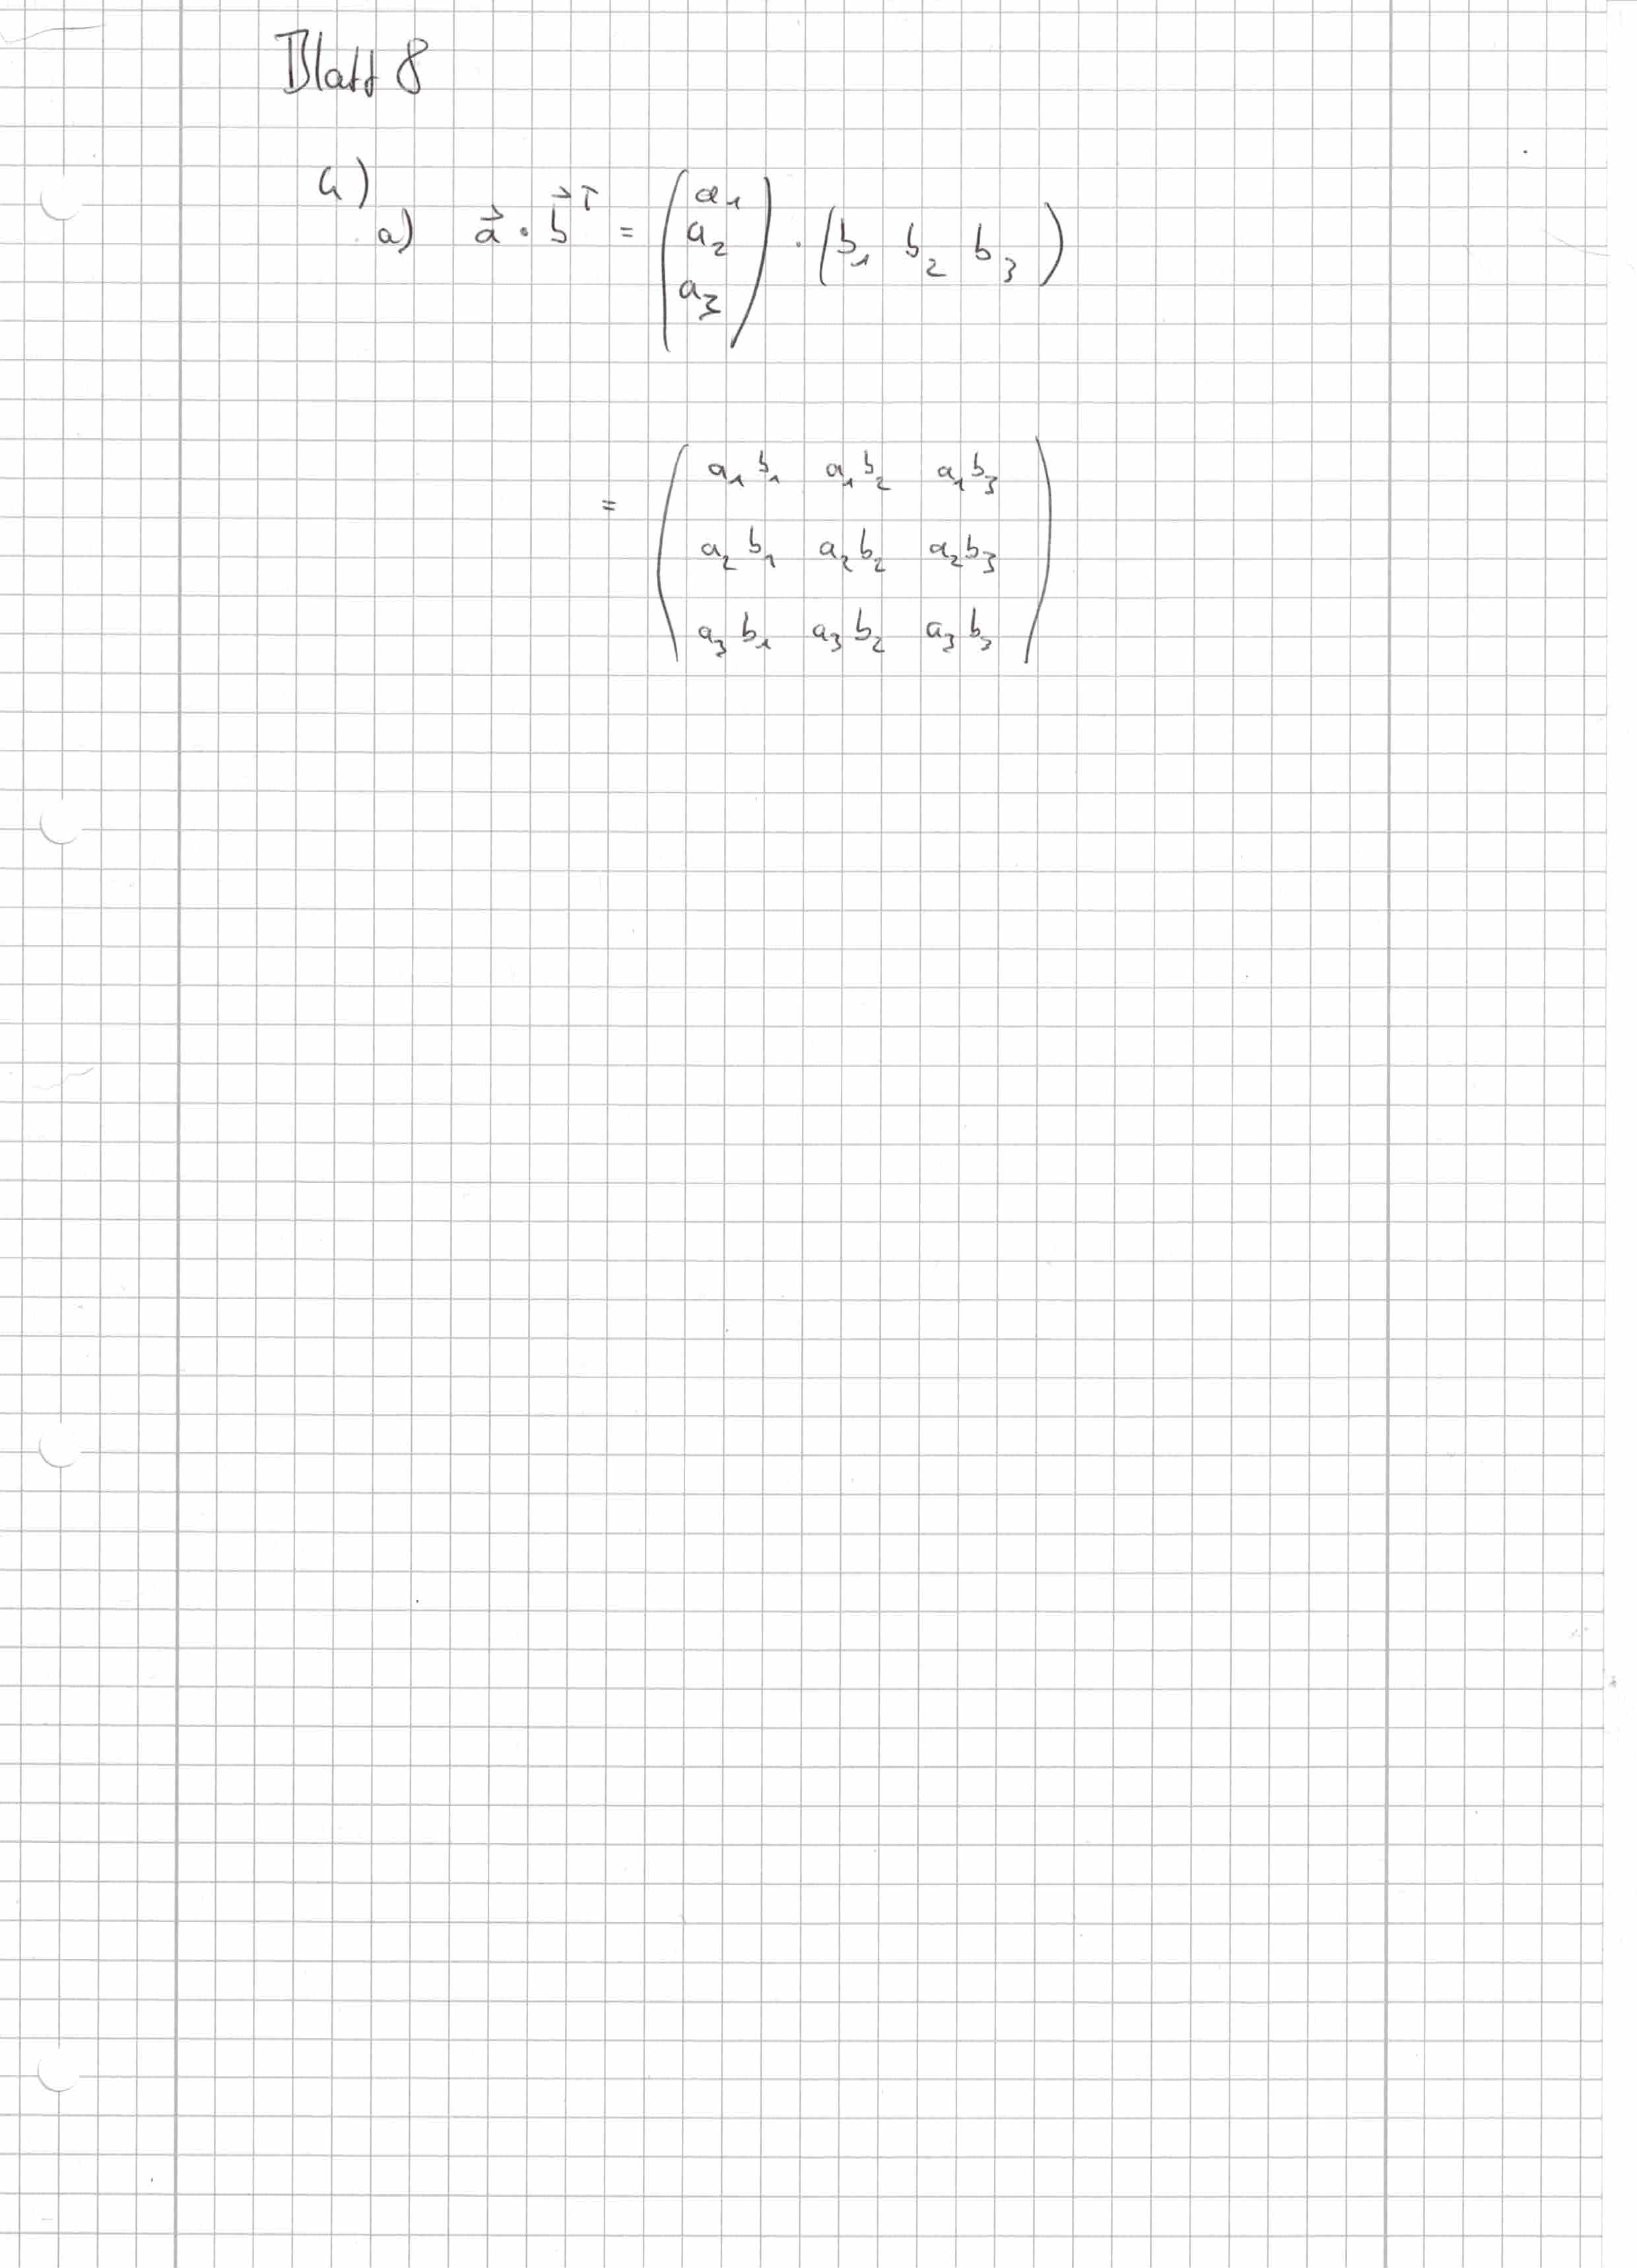 Blatt 8
4)
a) $\vec{a} \cdot \vec{b}^T = \begin{pmatrix} a_1 \\ a_2 \\ a_3 \end{pmatrix} \cdot (b_1 \; b_2 \; b_3)$
$= \begin{pmatrix} a_1 b_1 & a_1 b_2 & a_1 b_3 \\ a_2 b_1 & a_2 b_2 & a_2 b_3 \\ a_3 b_1 & a_3 b_2 & a_3 b_3 \end{pmatrix}$